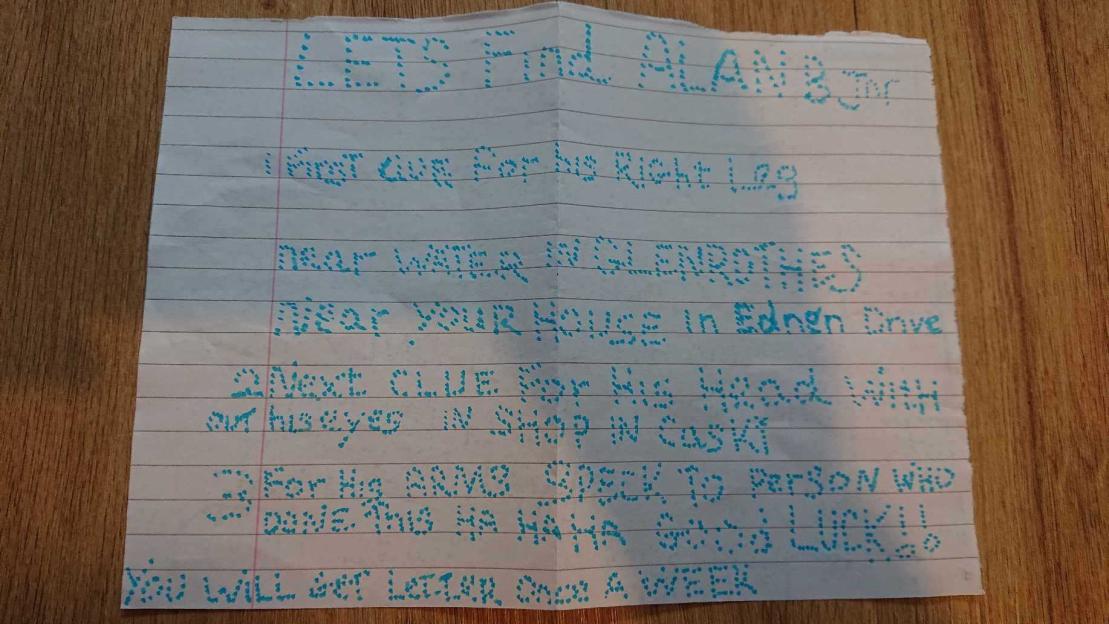 LETS Find ALAN B Jnr
1 First Clue For his Right Leg
near WATER IN GLENROTHES
Near YOUR HOUSE in Ednan Drive
2 Next CLUE For His Head WITH
out his eyes IN SHOP IN CasKT
3 For His ARMS SPECK To Person WHO
DONE This HA HA HA Good LUCK!!
YOU WILL GET LETTER Once A WEEK